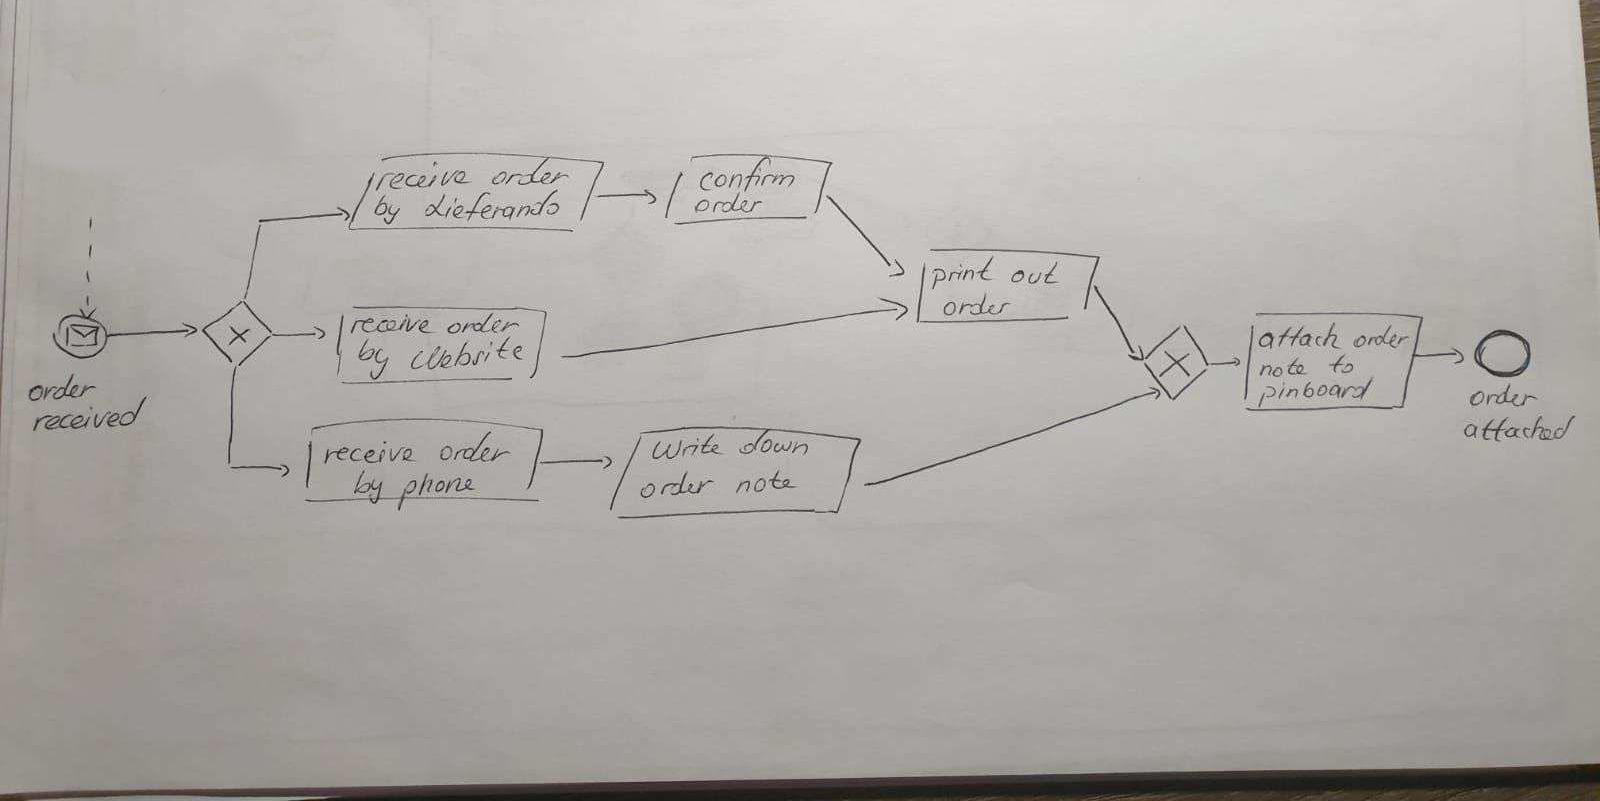 order
received
receive order
by Lieferando
confirm
order
receive order
by Website
receive order
by phone
Write down
order note
print out
order
attach order
note to
pinboard
order
attached